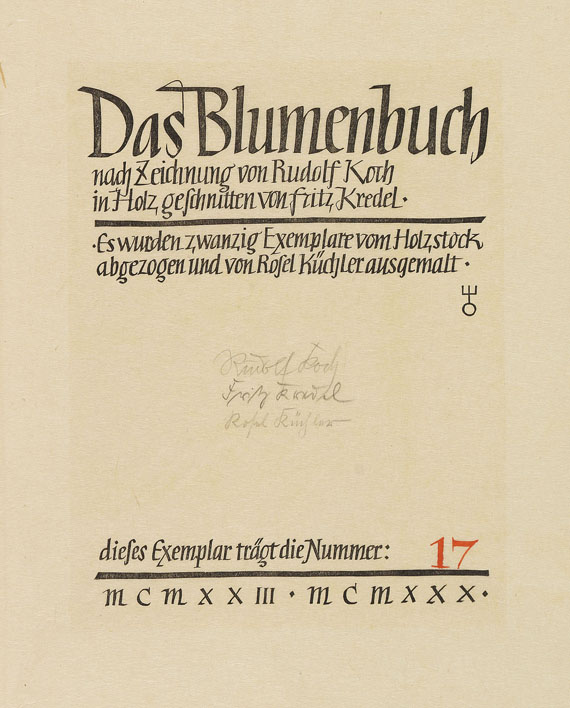 Das Blumenbuch
nach Zeichnung von Rudolf Koch
in Holz geſchnitten von Fritz Kredel·
·Es wurden zwanzig Exemplare vom Holzstock
abgezogen und von Roſel Küchler ausgemalt·
Rudolf Koch
Fritz Kredel
Roſel Küchler
dieſes Exemplar trägt die Nummer: 17
MCMXXIII · MCMXXX·